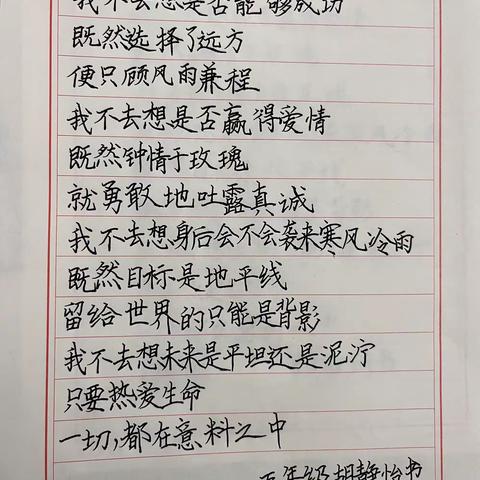 我不去想是否能够成功
既然选择了远方
便只顾风雨兼程
我不去想是否赢得爱情
既然钟情于玫瑰
就勇敢地吐露真诚
我不去想身后会不会袭来寒风冷雨
既然目标是地平线
留给世界的只能是背影
我不去想未来是平坦还是泥泞
只要热爱生命
一切,都在意料之中
五年级胡静怡书